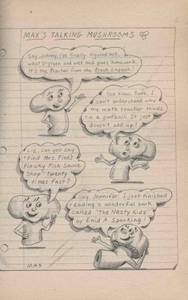 MAX'S TALKING MUSHROOMS
Say Johnny, I've finally figured out
what's green and wet and gives homework.
It's the Teacher from the Black Lagoon!
You know, Dave, I
can't understand why
my math teacher thinks
I'm a goofball. It just
doesn't add up!
Liz, can you say
"Find Mrs. Fink's
Finicky Fish Sauce
Shop" twenty
times fast?
Hey, Jennifer, I just finished
reading a wonderful book
called "The Nasty Kids"
by Enid A. Spanking
MAX